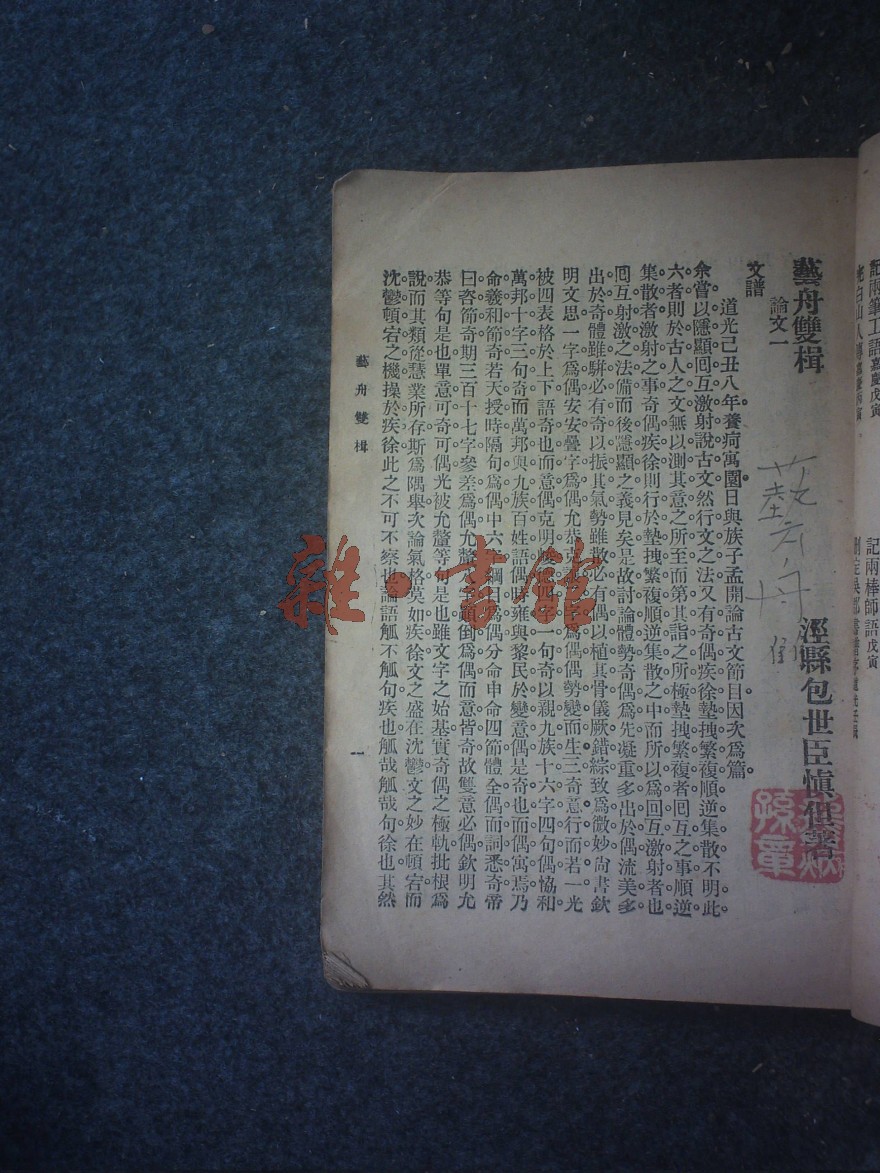 記兩筆工語嘉慶戊寅
記兩棒師語戊寅
藝舟雙楫
涇縣包世臣慎伯著
論文一
文譜
道光己丑八年養疴寓園日與族子孟開論古文節目因次為篇。
余嘗以隱顯回互激射說古文然行文之法又有奇偶疾徐墊拽繁複順逆集散不明此
六者則於古人之文無以測其意之所至而第其詣之所極墊拽繁複者回互之事順逆
集散者激射之事奇偶疾徐則行於墊拽繁複順逆集散之中而所以為回互激射者也
回互射激之法備而後隱顯之義見矣是故討論體勢奇偶為先凝重多出於偶流美多
出於奇體雖駢必有奇以振其氣勢雖散必有偶以植其骨儀厥錯綜致為微妙尚書欽
明文思一字為偶安安疊字為偶允恭克讓二字為偶偶勢變而生三奇意行而若一光
被四表格於上下語奇也而意偶克明俊德四字一句奇以親九族十六字四句偶協和
萬邦十字三句奇而萬邦與九族百姓語偶時雍與黎民於變意偶是奇也而偶寓焉乃
命羲和節奇若天授時隔句為偶中六字綱目為偶分命申命四節體全偶而詞悉奇帝
曰咨節奇期三百十七字參差為偶允釐八字顛倒為偶而意皆奇故雙意必偶欽明允
恭等句是也單意可奇可偶光被允釐等句是也雖文字之始基實奇偶之極軌批根為
說而其類從慧業所存斯為隅舉次論氣格莫如疾徐文之盛在沈鬱文之妙在頓宕而
沈鬱頓宕之機操於疾徐此之不可不察也論語觚不觚句疾也觚哉觚哉句徐也其然
藝舟雙楫
一
雜·書館